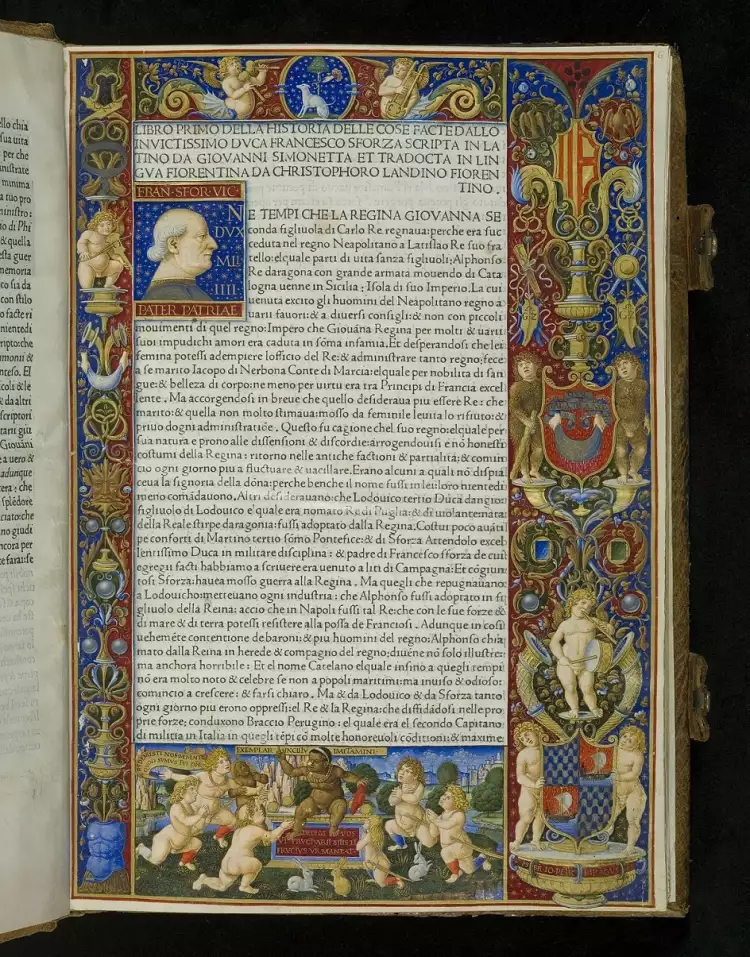 LIBRO PRIMO DELLA HISTORIA DELLE COSE FACTE DALLO
INVICTISSIMO DVCA FRANCESCO SFORZA SCRIPTA IN LA
TINO DA GIOVANNI SIMONETTA ET TRADOCTA IN LIN
GVA FIORENTINA DA CHRISTOPHORO LANDINO FIOREN
TINO .
FRAN·SFOR·VIC
DVX
MLI
IIII
PATER PATRIAE
NE TEMPI CHE LA REGINA GIOVANNA SE
conda figliuola di Carlo Re regnaua: perche era suc
ceduta nel regno Neapolitano a Latislao Re suo fra
tello: elquale parti di uita sanza figliuoli: Alphonso
Re daragona con grande armata mouendo di Cata
logna uenne in Sicilia: Isola di suo Imperio. La cui
uenuta excito gli huomini del Neapolitano regno a
uarii fauori: & a diuersi consigli: & non con piccoli
mouimenti di quel regno: Impero che Giouāna Regina per molti & uarii
suoi impudichi amori era caduta in sōma infamia. Et desperandosi che lei
femina potessi adempiere lofficio del Re: & administrare tanto regno: fece
a se marito Iacopo di Nerbona Conte di Marcia: elquale per nobilita di san
gue: & belleza di corpo: ne meno per uirtu era tra Principi di Francia excel
lente . Ma accorgendosi in breue che quello desideraua piu essere Re: che
marito: & quella non molto stimaua: mosso da feminile leuita lo rifiuto: &
priuo dogni administratiōe . Questo fu cagione chel suo regno: elquale per
sua natura e prono alle dissensioni & discordie: arrogendouisi e nō honesti
costumi della Regina: ritorno nelle antiche factioni & partialita: & comin
cio ogni giorno piu a fluctuare & uacillare. Erano alcuni a quali nō dispia
ceua la signoria della dōna: perche benche il nome fussi in lei: loro nientedi
meno comādauono. Altri desiderauano: che Lodouico tertio Duca dangio:
figliuolo di Lodouico elquale era nomato Re di Puglia: & di uiolante nata
della Reale stirpe daragonia: fussi adoptato dalla Regina. Costui poco auāti
pe conforti di Martino tertio sōmo Pontefice: & di Sforza Attendolo excel
lentissimo Duca in militare disciplina: & padre di Francesco sforza de cui
egregii facti habbiamo a scriuere era uenuto a liti di Campagna: Et cogiun
tosi Sforza: hauea mosso guerra alla Regina . Ma quegli che repugnauano
a Lodouicho: metteuano ogni industria: che Alphonso fussi adoptato in fi
gliuolo della Reina: accio che in Napoli fussi tal Re: che con le sue forze &
di mare & di terra potessi resistere alla possa de Franciosi. Adunque in cosi
uehemēte contentione de baroni: & piu huomini del regno: Alphonso chia
mato dalla Reina in herede & compagno del regno: diuēne nō solo illustre:
ma anchora horribile: Et el nome Catelano elquale insino a quegli tempi
nō era molto noto & celebre se non a popoli maritimi: ma inuiso & odioso:
comincio a crescere: & farsi chiaro. Ma & da Lodouico & da Sforza tanto
ogni giorno piu erono oppressi: el Re & la Regina: che diffidādosi nelle pro
prie forze: conduxono Braccio Perugino: el quale era el secondo Capitano
di militia in Italia in quegli tēpi cō molte honoreuoli cōditioni: & maxime
EXEMPLAR
IMITAMINI